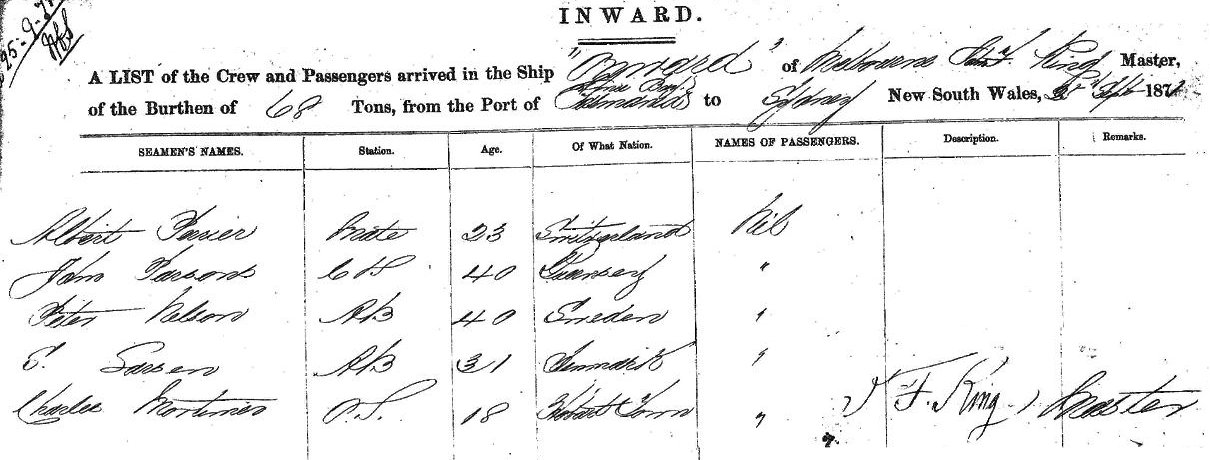 25-9-7
INWARD.
A LIST of the Crew and Passengers arrived in the Ship "Onward" of Melbourne King Master,
of the Burthen of 68 Tons, from the Port of Tasmania to Sydney New South Wales, Sept 187
SEAMEN'S NAMES. Station. Age. Of What Nation. NAMES OF PASSENGERS. Description. Remarks.
Albert Mate 23 Switzerland Nil
John Parsons 40 Guernsey "
Peter Nelson AB 40 Sweden "
Larsen AB 31 Denmark "
Charles Mortimer O.S. 18 Hobart Town " F. King Master